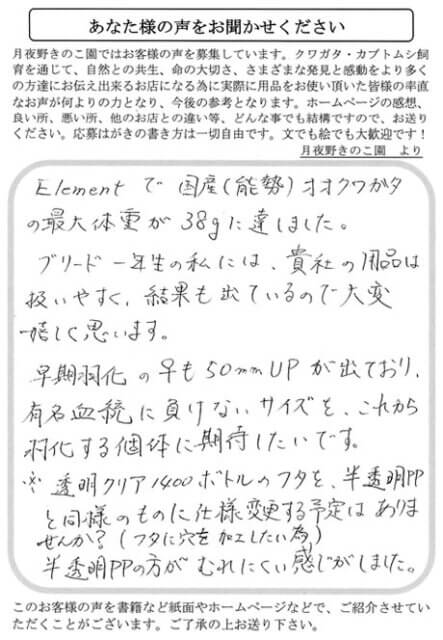 あなた様の声をお聞かせください
月夜野きのこ園ではお客様の声を募集しています。クワガタ・カブトムシ飼
育を通じて、自然との共生、命の大切さ、さまざまな発見と感動をより多く
の方達にお伝え出来るお店になる為に実際に用品をお使い頂いた皆様の率直
なお声が何よりの力となり、今後の参考となります。ホームページの感想、
良い所、悪い所、他のお店との違い等、どんな事でも結構ですので、お送り
ください。応募はがきの書き方は一切自由です。文でも絵でも大歓迎です！
月夜野きのこ園　より
Elementで国産(能勢)オオクワガタ
の最大体重が38gに達しました。
ブリード一年生の私には、貴社の用品は
扱いやすく、結果も出ているので大変
嬉しく思います。
早期羽化の♀も50mmUPが出ており、
有名血統に負けないサイズを、これから
羽化する個体に期待したいです。
※透明クリア1400ボトルのフタを、半透明PP
と同様のものに仕様変更する予定はありま
せんか？(フタに穴を加工したい為)
半透明PPの方がむれにくい感じがしました。
このお客様の声を書籍など紙面やホームページなどで、ご紹介させてい
ただくことがございます。ご了承の上お送り下さい。